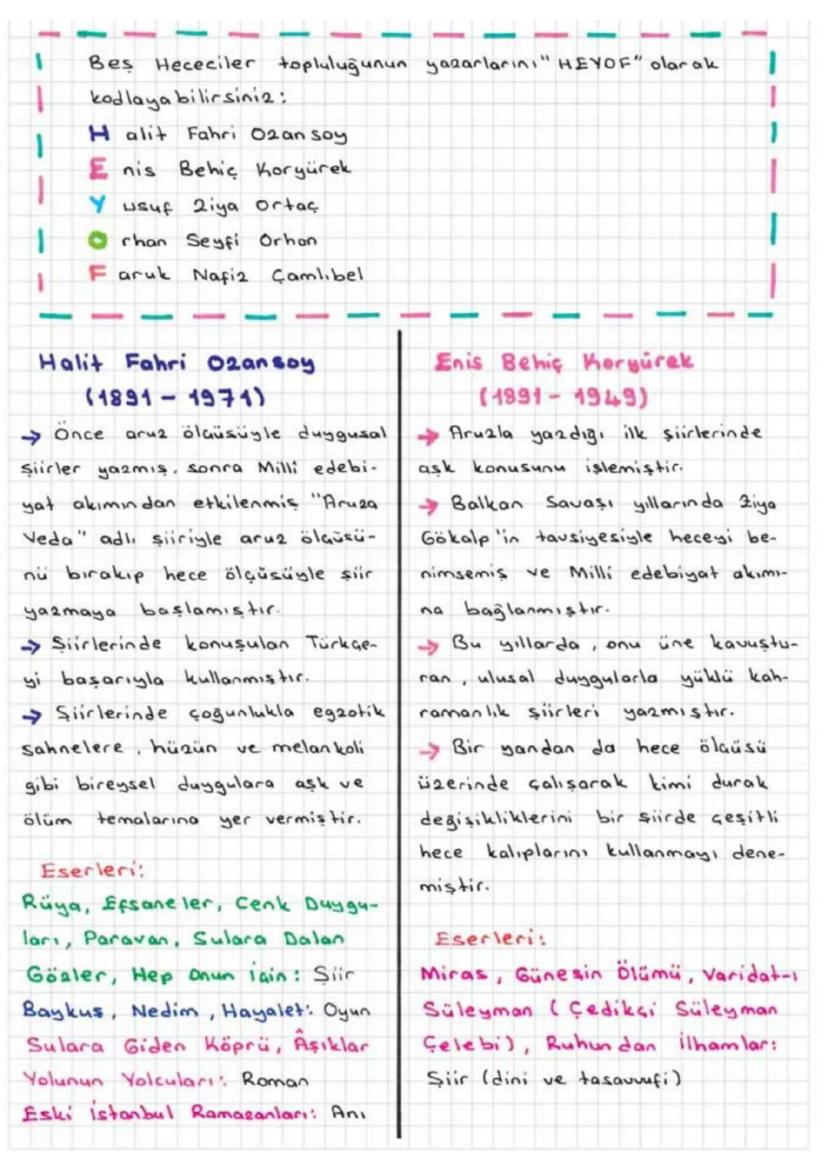 Beş Hececiler topluluğunun yazarlarını "HEYOF" olarak
kodlayabilirsiniz:
Halit Fahri Ozansoy
Enis Behiç Koryürek
Yusuf Ziya Ortaç
Orhan Seyfi Orhon
Faruk Nafiz Çamlıbel
Halit Fahri Ozansoy
(1891 - 1971)
→ Önce aruz ölçüsüyle duygusal
şiirler yazmış, sonra Milli edebi-
yat akımından etkilenmiş "Aruza
Veda" adlı şiiriyle aruz ölçüsü-
nü bırakıp hece ölçüsüyle şiir
yazmaya başlamıştır.
→ Şiirlerinde konuşulan Türkçe-
yi başarıyla kullanmıştır.
→ Şiirlerinde çoğunlukla egzotik
sahnelere, hüzün ve melankoli
gibi bireysel duygulara aşk ve
ölüm temalarına yer vermiştir.
Eserleri:
Rüya, Efsaneler, Cenk Duygu-
ları, Paravan, Sulara Dalan
Gözler, Hep Onun İçin: Şiir
Baykuş, Nedim, Hayalet: Oyun
Sulara Giden Köprü, Âşıklar
Yolunun Yolcuları: Roman
Eski İstanbul Ramazanları: Anı
Enis Behiç Koryürek
(1891 - 1949)
→ Aruzla yazdığı ilk şiirlerinde
aşk konusunu işlemiştir.
→ Balkan Savaşı yıllarında Ziya
Gökalp'in tavsiyesiyle heceyi be-
nimsemiş ve Milli edebiyat akımı-
na bağlanmıştır.
→ Bu yıllarda, onu üne kavuştu-
ran, ulusal duygularla yüklü kah-
ramanlık şiirleri yazmıştır.
→ Bir yandan da hece ölçüsü
üzerinde çalışarak kimi durak
değişikliklerini bir şiirde çeşitli
hece kalıplarını kullanmayı dene-
miştir.
Eserleri:
Miras, Güneşin Ölümü, Varidat-ı
Süleyman (Çedikçi Süleyman
Çelebi), Ruhundan İlhamlar:
Şiir (dini ve tasavvufi)